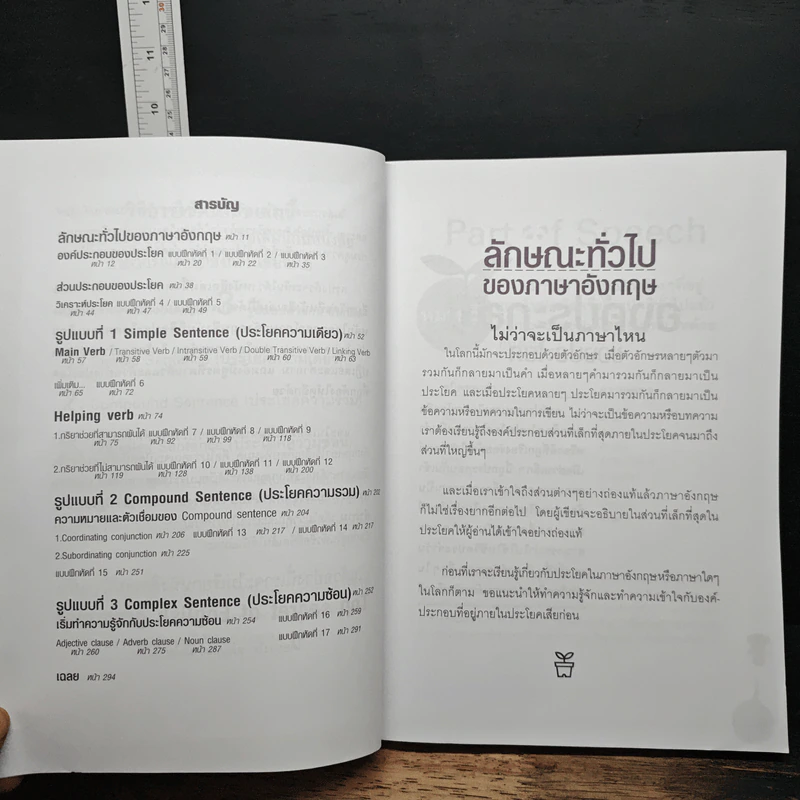 สารบัญ
ลักษณะทั่วไปของภาษาอังกฤษ หน้า 11
องค์ประกอบของประโยค แบบฝึกหัดที่ 1 / แบบฝึกหัดที่ 2 / แบบฝึกหัดที่ 3
หน้า 12 หน้า 20 หน้า 22 หน้า 35
ส่วนประกอบของประโยค หน้า 38
วิเคราะห์ประโยค แบบฝึกหัดที่ 4 / แบบฝึกหัดที่ 5
หน้า 44 หน้า 47 หน้า 49
รูปแบบที่ 1 Simple Sentence (ประโยคความเดียว) หน้า 52
Main Verb / Transitive Verb / Intransitive Verb / Double Transitive Verb / Linking Verb
หน้า 57 หน้า 58 หน้า 59 หน้า 60 หน้า 63
เพิ่มเติม... แบบฝึกหัดที่ 6
หน้า 65 หน้า 72
Helping verb หน้า 74
1.กริยาช่วยที่สามารถผันได้ แบบฝึกหัดที่ 7 / แบบฝึกหัดที่ 8 / แบบฝึกหัดที่ 9
หน้า 75 หน้า 92 หน้า 99 หน้า 118
2.กริยาช่วยที่ไม่สามารถผันได้ แบบฝึกหัดที่ 10 / แบบฝึกหัดที่ 11 / แบบฝึกหัดที่ 12
หน้า 119 หน้า 128 หน้า 138 หน้า 200
รูปแบบที่ 2 Compound Sentence (ประโยคความรวม) หน้า
ความหมายและตัวเชื่อมของ Compound sentence หน้า 204
1.Coordinating conjunction หน้า 206 แบบฝึกหัดที่ 13 หน้า 217 / แบบฝึกหัดที่ 14 หน้า 217
2.Subordinating conjunction หน้า 225
แบบฝึกหัดที่ 15 หน้า 251
รูปแบบที่ 3 Complex Sentence (ประโยคความซ้อน) หน้า 252
เริ่มทำความรู้จักกับประโยคความซ้อน หน้า 254 แบบฝึกหัดที่ 16 หน้า 259
Adjective clause / Adverb clause / Noun clause แบบฝึกหัดที่ 17 หน้า 291
หน้า 260 หน้า 275 หน้า 287
เฉลย หน้า 294
ลักษณะทั่วไป
ของภาษาอังกฤษ
ไม่ว่าจะเป็นภาษาไหน
ในโลกนี้มักจะประกอบด้วยตัวอักษร เมื่อตัวอักษรหลายๆตัวมา
รวมกันก็กลายมาเป็นคำ เมื่อหลายๆคำมารวมกันก็กลายมาเป็น
ประโยค และเมื่อประโยคหลายๆ ประโยคมารวมกันก็กลายมาเป็น
ข้อความหรือบทความในการเขียน ไม่ว่าจะเป็นข้อความหรือบทความ
เราต้องเรียนรู้ถึงองค์ประกอบส่วนที่เล็กที่สุดภายในประโยคจนมาถึง
ส่วนที่ใหญ่ขึ้นๆ
และเมื่อเราเข้าใจถึงส่วนต่างๆอย่างถ่องแท้แล้วภาษาอังกฤษ
ก็ไม่ใช่เรื่องยากอีกต่อไป โดยผู้เขียนจะอธิบายในส่วนที่เล็กที่สุดใน
ประโยคให้ผู้อ่านได้เข้าใจอย่างถ่องแท้
ก่อนที่เราจะเรียนรู้เกี่ยวกับประโยคในภาษาอังกฤษหรือภาษาใดๆ
ในโลกก็ตาม ขอแนะนำให้ทำความรู้จักและทำความเข้าใจกับองค์-
ประกอบที่อยู่ภายในประโยคเสียก่อน
11
10
30
29
28
27
26